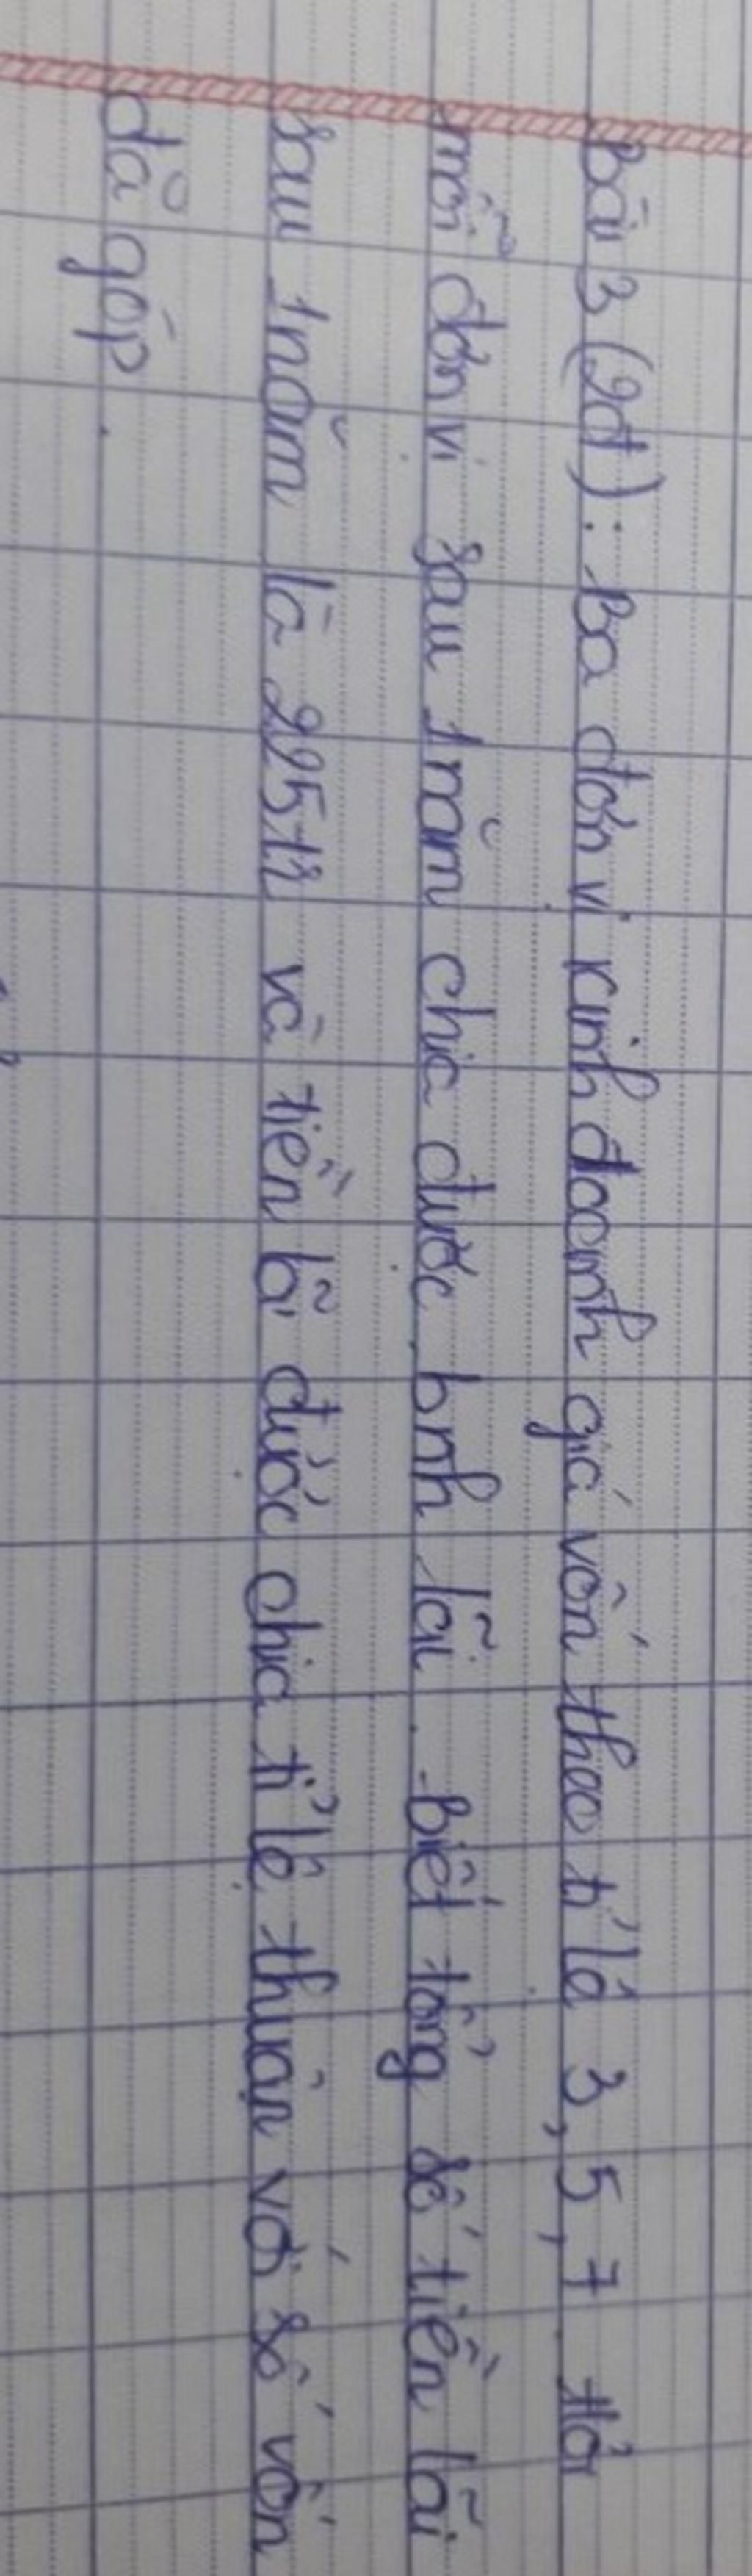 Bài 3 (2đ): Ba đơn vị kinh doanh giá vốn theo tỉ lệ 3, 5, 7. Hỏi
mỗi đơn vị sau 1 năm chia được bnh lãi. Biết tổng số tiền lãi
sau 1 năm là 225 tr và tiền lãi được chia tỉ lệ thuận với số vốn
đã góp.